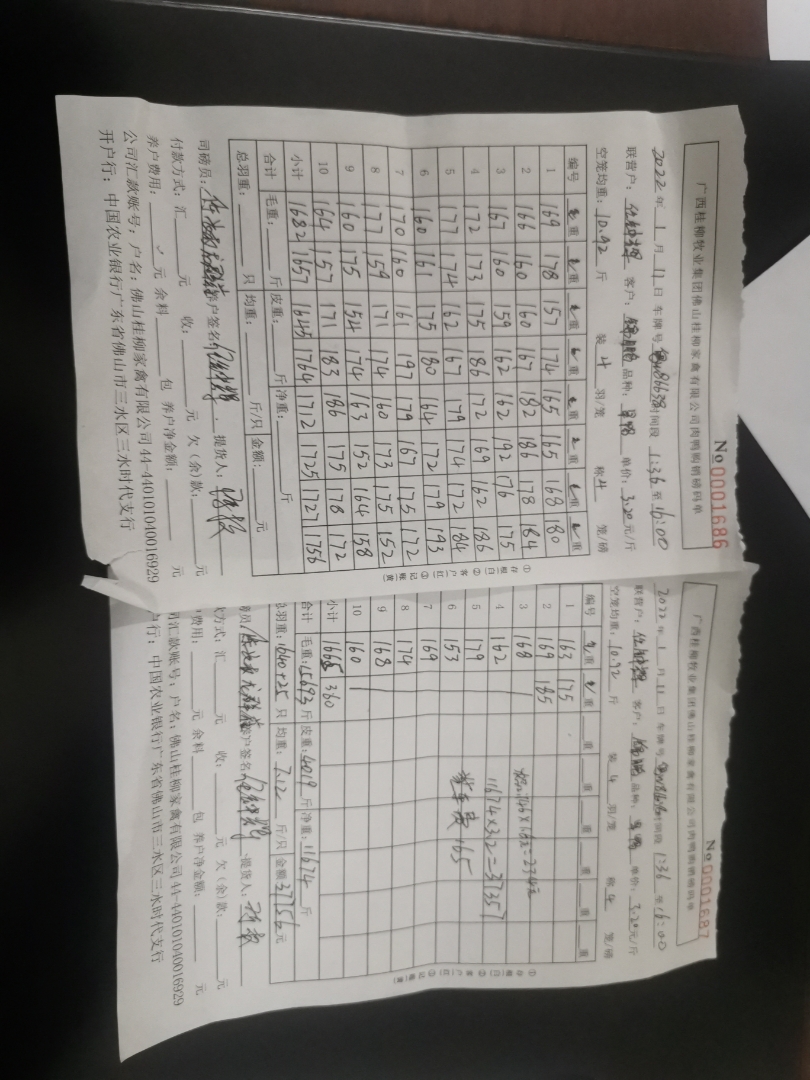 No 00001686
广西桂柳牧业集团佛山桂柳家禽有限公司肉鸭购销磅码单
2022 年 1 月 11 日 车牌号 时间段 1:36 至 16:00
联营户： 客户： 品种： 单价：3.20元/斤
空笼均重：10.92 斤 装 4 羽/笼 称 4 笼/磅
编号 重 重 重 重 重 重 重 重
1 169 178 157 174 165 165 168 180
2 166 160 160 167 182 186 178 184
3 167 160 159 162 162 192 176 175
4 172 173 175 186 172 169 162 186
5 177 174 162 167 179 174 172 184
6 160 161 175 180 164 172 179 193
7 170 160 161 197 179 167 175 172
8 177 159 171 174 160 173 175 152
9 160 175 154 174 163 152 164 158
10 164 157 171 183 186 175 178 172
小计 1682 1657 1645 1764 1712 1725 1727 1756
合计 毛重： 斤 皮重： 斤 净重： 斤
总羽重： 只 均重： 斤/只 金额： 元
司磅员： 养户签名： 提货人：
付款方式：汇 元 收： 元 欠（余）款： 元
养户费用： 元 余料 包 养户净金额： 元
公司汇款账号：户名：佛山桂柳家禽有限公司 44-440101040016929
开户行：中国农业银行广东省佛山市三水区三水时代支行
①存根(白) ②客户(红) ③记账(黄)
No 00001687
广西桂柳牧业集团佛山桂柳家禽有限公司肉鸭购销磅码单
2022 年 1 月 11 日 车牌号 时间段 1:36 至 16:00
联营户： 客户： 品种： 单价：3.20元/斤
空笼均重：10.92 斤 装 4 羽/笼 称 4 笼/磅
编号 重 重 重 重 重 重 重 重
1 163 175
2 169 185
3 168
4 162
5 179
6 153
7 169
8 174
9 168
10 160
小计 1665 360
11674×3.2=37357
装车费 165
合计 毛重：15693 斤 皮重：4019 斤 净重：11674 斤
总羽重：1640+25 只 均重：7.12 斤/只 金额 37756 元
磅员： 养户签名 提货人：
方式：汇 元 收： 元 欠（余）款： 元
费用： 元 余料 包 养户净金额： 元
司汇款账号：户名：佛山桂柳家禽有限公司 44-440101040016929
行：中国农业银行广东省佛山市三水区三水时代支行
①存根(白) ②客户(红) ③记账(黄)